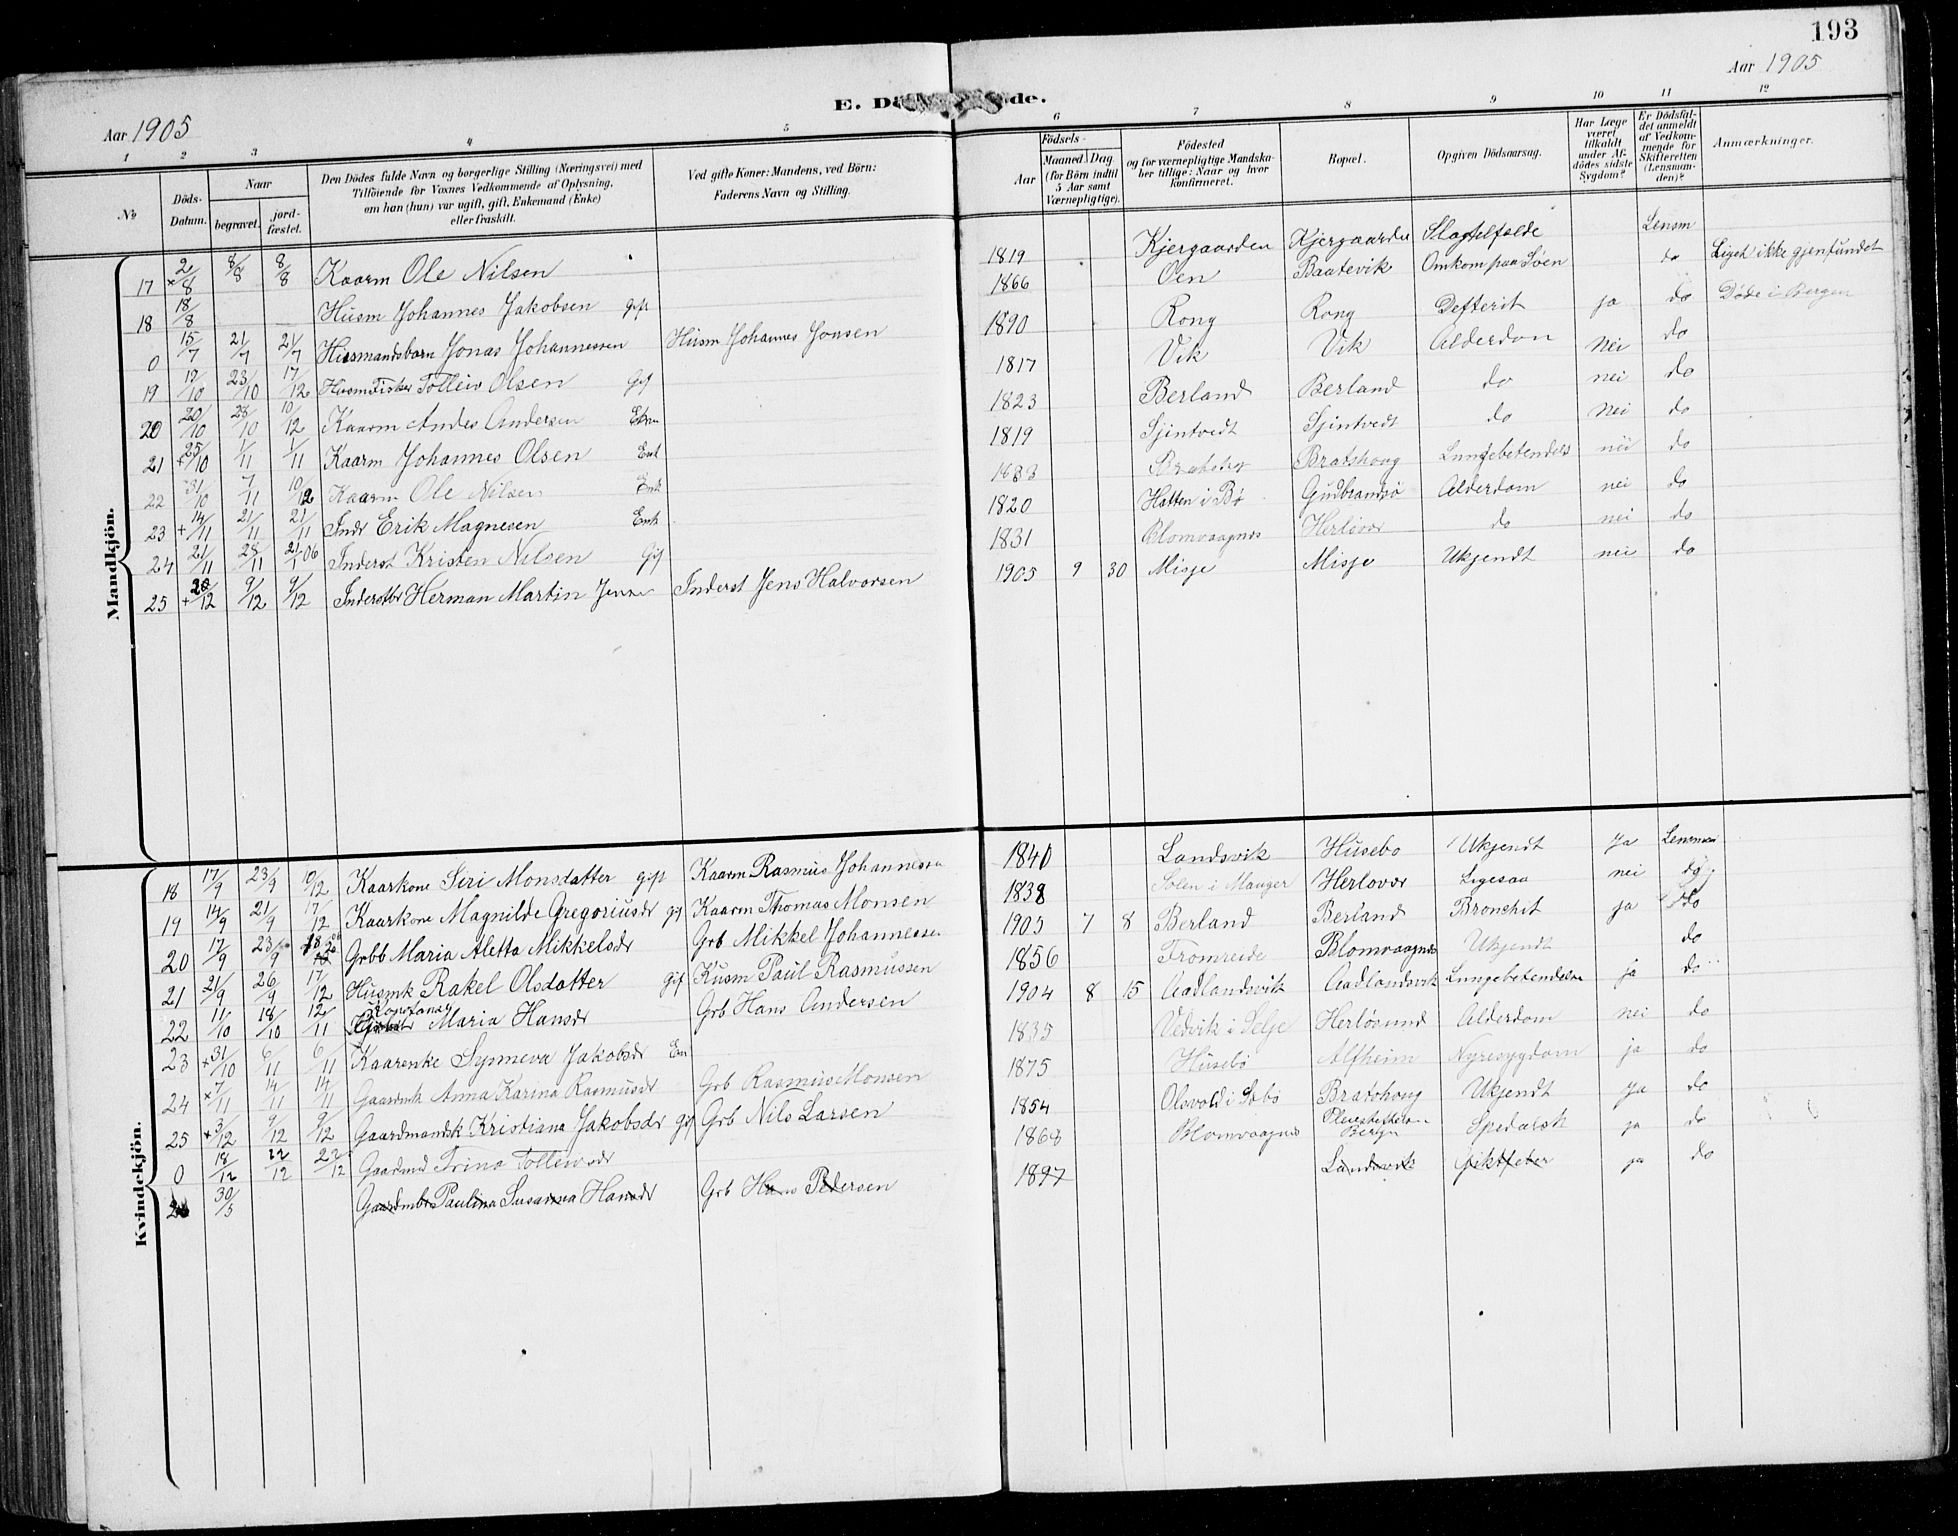 193
Aar 1905
Aar 1905
E. Dö de.
1 2 3 4 5 6 7 8 9 10 11 12
No
Döds-Datum.
Naar
begravet.
jord-fæstet.
Den Dödes fulde Navn og borgerlige Stilling (Næringsvei) med
Tilföiende for Voxnes Vedkommende af Oplysning,
om han (hun) var ugift, gift, Enkemand (Enke)
eller fraskilt.
Ved gifte Koner: Mandens, ved Börn:
Faderens Navn og Stilling.
Födsels-
Aar
Maaned. Dag.
(for Börn indtil
5 Aar samt
Værnepligtige).
Födested
og for værnepligtige Mandska-
ber tillige: Naar og hvor
konfirmeret.
Bopæl.
Opgiven Dödsaarsag.
Har Læge
været
tilkaldt
under Af-
dödes sidste
Sygdom?
Er Dödsfal-
det anmeldt
af Vedkom-
mende for
Skifteretten
(Lensman-
den)?
Anmærkninger.
Mandkjön.
17 2/8 8/8 8/8 Kaarm Ole Nilsen 1819 Kjergaarden Kjergaarden Slagtilfelde Lensm
18 18/8 Husm Johannes Jakobsen gift 1866 Oen Baatevik Omkom paa Söen do Liget ikke gjenfundet
0 15/7 21/7 21/7 Husmandsbarn Jonas Johannessen Husm Johannes Jonsen 1890 Rong Rong Defterit ja do Döde i Bergen
19 19/10 23/10 17/12 Husm Fisker Tolleiv Olsen Gif 1817 Vik Vik Alderdom Nei do
20 20/10 28/10 10/12 Kaarm Andes Andersen 1823 Berland Berland do nei do
21 +25/10 1/11 1/11 Kaarm Johannes Olsen Enk 1819 Sjintvedt Sjintvedt do Nei do
22 31/10 7/11 10/12 Kaarm Ole Nilsen Enk Bratshoug Lungebetendels nei do
23 +14/11 21/11 21/11 Inds Erik Magnesen Enk 1820 Hatten i Bö Gudbrandsö Alderdom nei do
24 21/11 28/11 21/1 06 Inderst Kristen Nilsen Gif 1831 Blomvaagnes Herlövær do nei do
25 +20/12 9/12 9/12 Inderstbr Herman Martin Jensen Inderst Jens Halvorsen 1905 9 30 Misje Misje Ukjendt nei do
Kvindekjön.
18 17/9 23/9 10/12 Kaarkone Siri Monsdatter gift Kaarm Rasmus Johannessen 1840 Landsvik Husebo Ukjendt Ja Lensman
19 14/9 21/9 17/12 Kaarkone Magnilde Gregoriusdr gif Kaarm Thomas Monsen 1838 Solen i Manger Herlover Ligesaa nei do
20 17/9 23/9 Grbb Maria Aletta Mikkelsdr Grb Mikkel Johannessen 1905 7 8 Berland Berland Bronchit ja do
21 21/9 26/9 17/12 Husmk Rakel Olsdatter gif Husm Paul Rasmussen 1856 Fromreide Blomvaagnes Ukjendt do
22 11/10 18/10 12/11 Maria Hansdr Grb Hans Andersen 1904 8 15 Aadlandsvik Aadlandsvik Lungebetendelse ja do
23 +31/10 6/11 6/11 Kaarenke Synneva Jakobsdr En 1835 Vedvik i Selje Herlösund Alderdom nei do
24 +7/11 14/11 14/11 Gaardmk Anna Karina Rasmusdr Grb Rasmus Monsen 1875 Husebö Alfheim Nyresygdom ja do
25 +3/12 9/12 9/12 Gaardmandsk Kristiana Jakobsdr gif Grb Nils Larsen 1854 Olsvold i Sæbö Bratshoug Ukjendt Ja do
0 18/12 22/12 22/12 Gaardmd Trina Tolleivsdr 1868 Blomvaagnes Pleiestiftelsen Bergen Spedalsk ja do
26 30/5 Gaardmbr Paulina Susanna Hansdr Grb Hans Pedersen 1897 Landsvik Giktfeber ja do